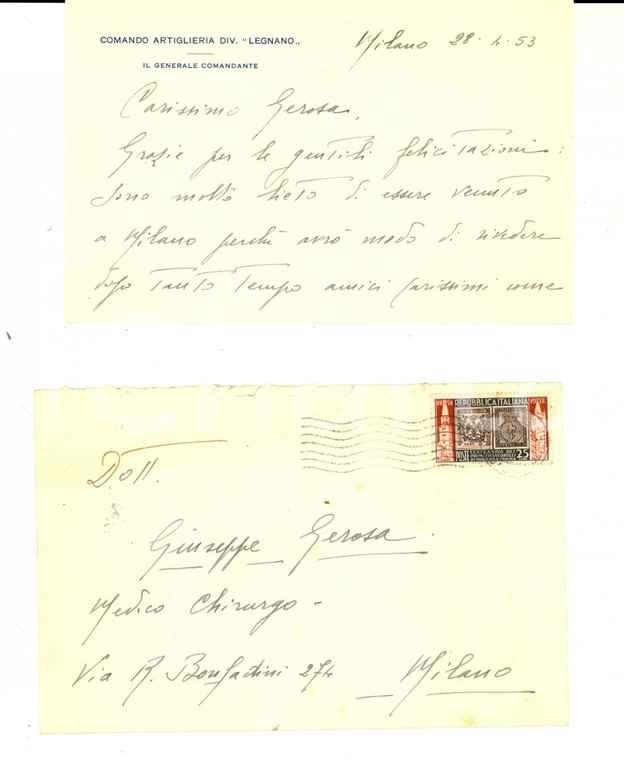 COMANDO ARTIGLIERIA DIV. "LEGNANO„
IL GENERALE COMANDANTE
Milano 28.4.53
Carissimo Gerosa,
Grazie per le gentili felicitazioni:
sono molto lieto di essere venuto
a Milano perchè avrò modo di rivedere
dopo tanto tempo amici carissimi come
REPUBBLICA ITALIANA
1952
POSTE
CENTENARIO DEI
PRIMI FRANCOBOLLI
DI MODENA E PARMA
25
Dott.
Giuseppe Gerosa
Medico Chirurgo -
Via R. Bonfadini 274 Milano